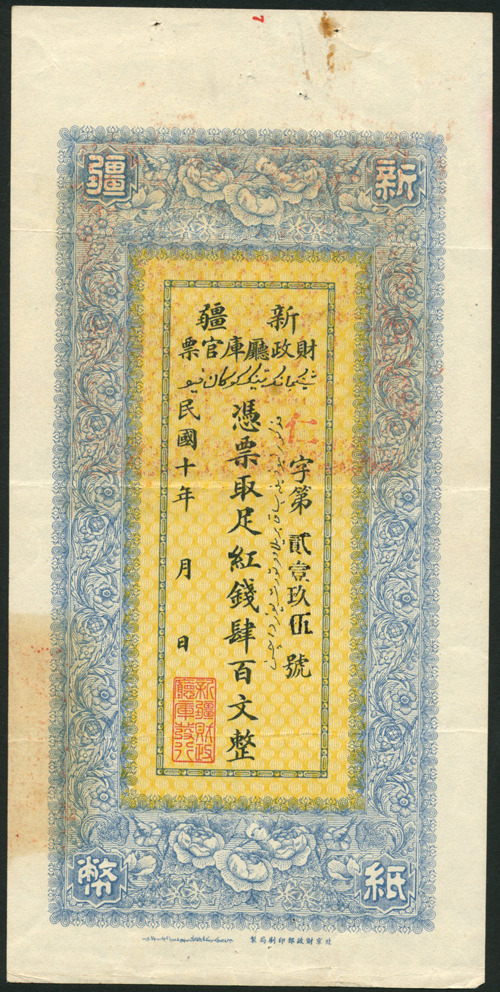 新疆
紙幣
新疆
財政廳庫官票
仁字第貳壹玖伍號
憑票取足紅錢肆百文整
民國十年 月 日
新疆財政
廳庫發行
北京財政部印刷局製
7